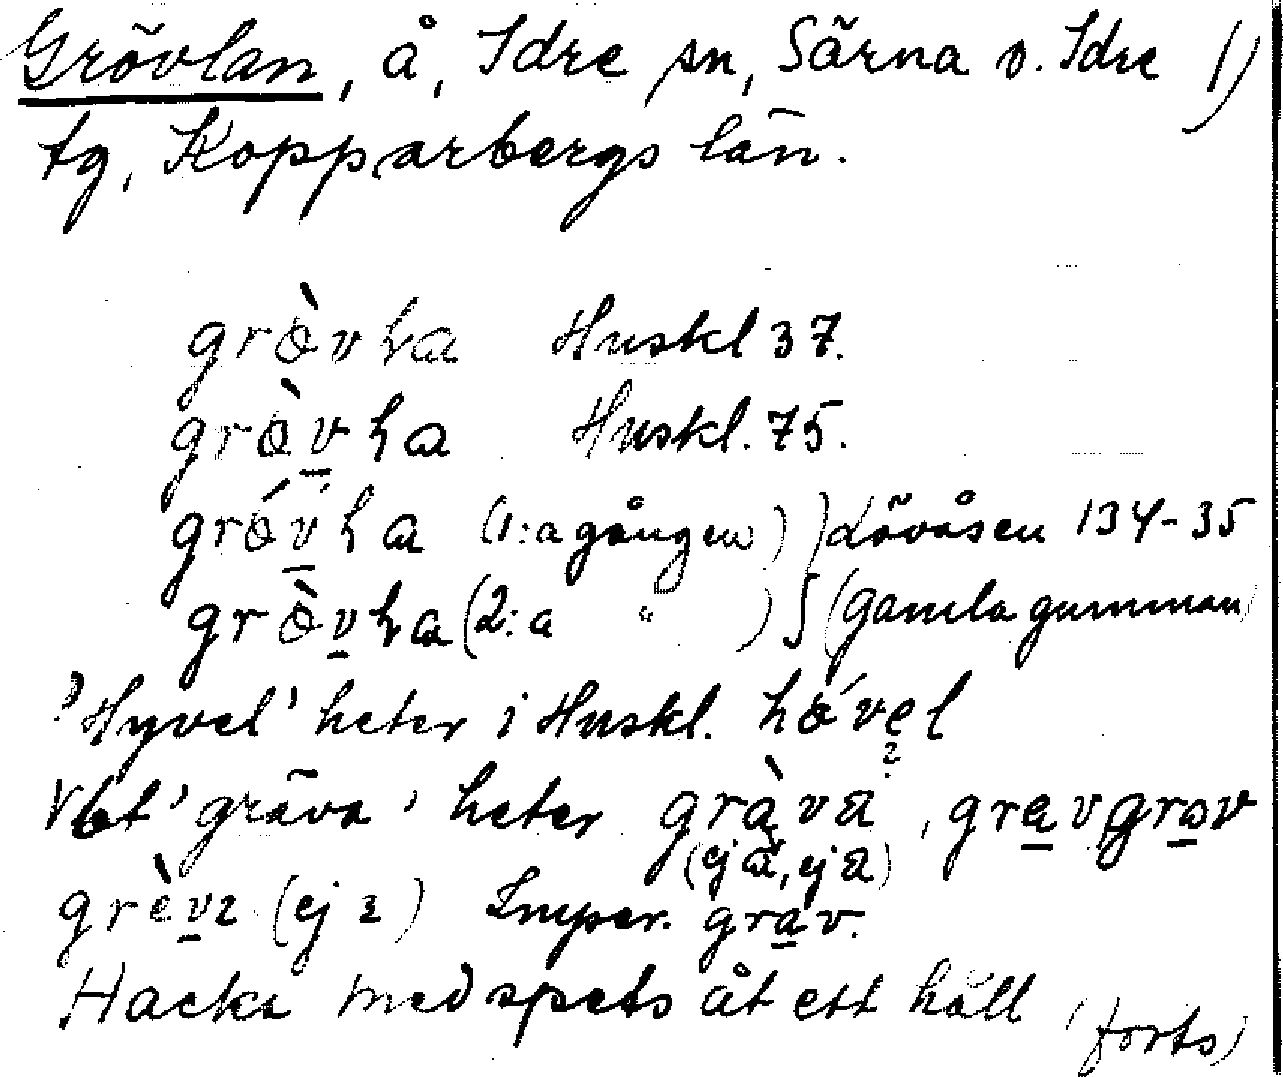 Grövlan, å, Idre sn, Särna o. Idre 1)
tg, Kopparbergs län.
grò̀vła Huskl 37.
grò̀vła Huskl. 75.
gróvła (1:a gången)
grò̀vła (2:a " )
} Lövåsen 134-35
(gamla gumman)
'Hyvel' heter i Huskl. hóvel
Vbt 'gräva' heter gràva, grav, grov
(ej a, ej a)
grèvı (ej ı) Imper. grav.
Hacka med spets åt ett håll
(forts)